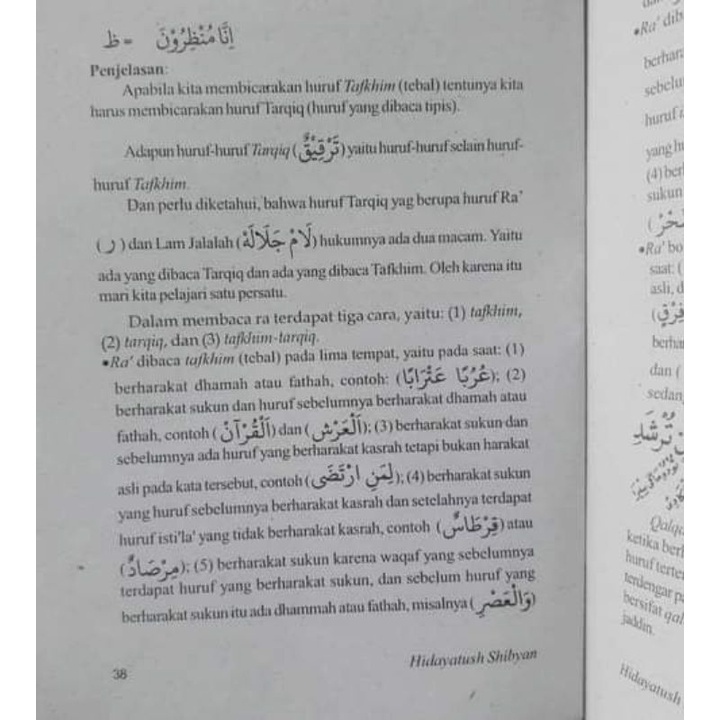 اِنَّا مُنْظِرُوْنَ = ظ
Penjelasan:
Apabila kita membicarakan huruf Tafkhim (tebal) tentunya kita
harus membicarakan huruf Tarqiq (huruf yang dibaca tipis).
Adapun huruf-huruf Tarqiq (تَرْقِيْقٌ) yaitu huruf-huruf selain huruf-
huruf Tafkhim.
Dan perlu diketahui, bahwa huruf Tarqiq yag berupa huruf Ra'
(ر) dan Lam Jalalah (لَامْ جَلَالَهْ) hukumnya ada dua macam. Yaitu
ada yang dibaca Tarqiq dan ada yang dibaca Tafkhim. Oleh karena itu
mari kita pelajari satu persatu.
Dalam membaca ra terdapat tiga cara, yaitu: (1) tafkhim,
(2) tarqiq, dan (3) tafkhim-tarqiq.
•Ra' dibaca tafkhim (tebal) pada lima tempat, yaitu pada saat: (1)
berharakat dhamah atau fathah, contoh: (عُرُبًا عَتْرَابًا); (2)
berharakat sukun dan huruf sebelumnya berharakat dhamah atau
fathah, contoh (اَلْقُرْآنْ) dan (اَلْعَرْشِ); (3) berharakat sukun dan
sebelumnya ada huruf yang berharakat kasrah tetapi bukan harakat
asli pada kata tersebut, contoh (لِمَنِ ارْتَضَى); (4) berharakat sukun
yang huruf sebelumnya berharakat kasrah dan setelahnya terdapat
huruf isti'la' yang tidak berharakat kasrah, contoh (قِرْطَاسٌ) atau
(مِرْصَادٌ); (5) berharakat sukun karena waqaf yang sebelumnya
terdapat huruf yang berharakat sukun, dan sebelum huruf yang
berharakat sukun itu ada dhammah atau fathah, misalnya (وَالْعَصْرِ)
38
Hidayatush Shibyan
•Ra' dib
berhara
sebelu
huruf i
yang h
(4) ber
sukun
•Ra' bo
saat: (
asli, d
(فِرْقٍ)
berha
dan (
sedan
Qalqa
ketika berh
huruf terte
terdengar pa
bersifat qal
jaddin.
Hidayatush